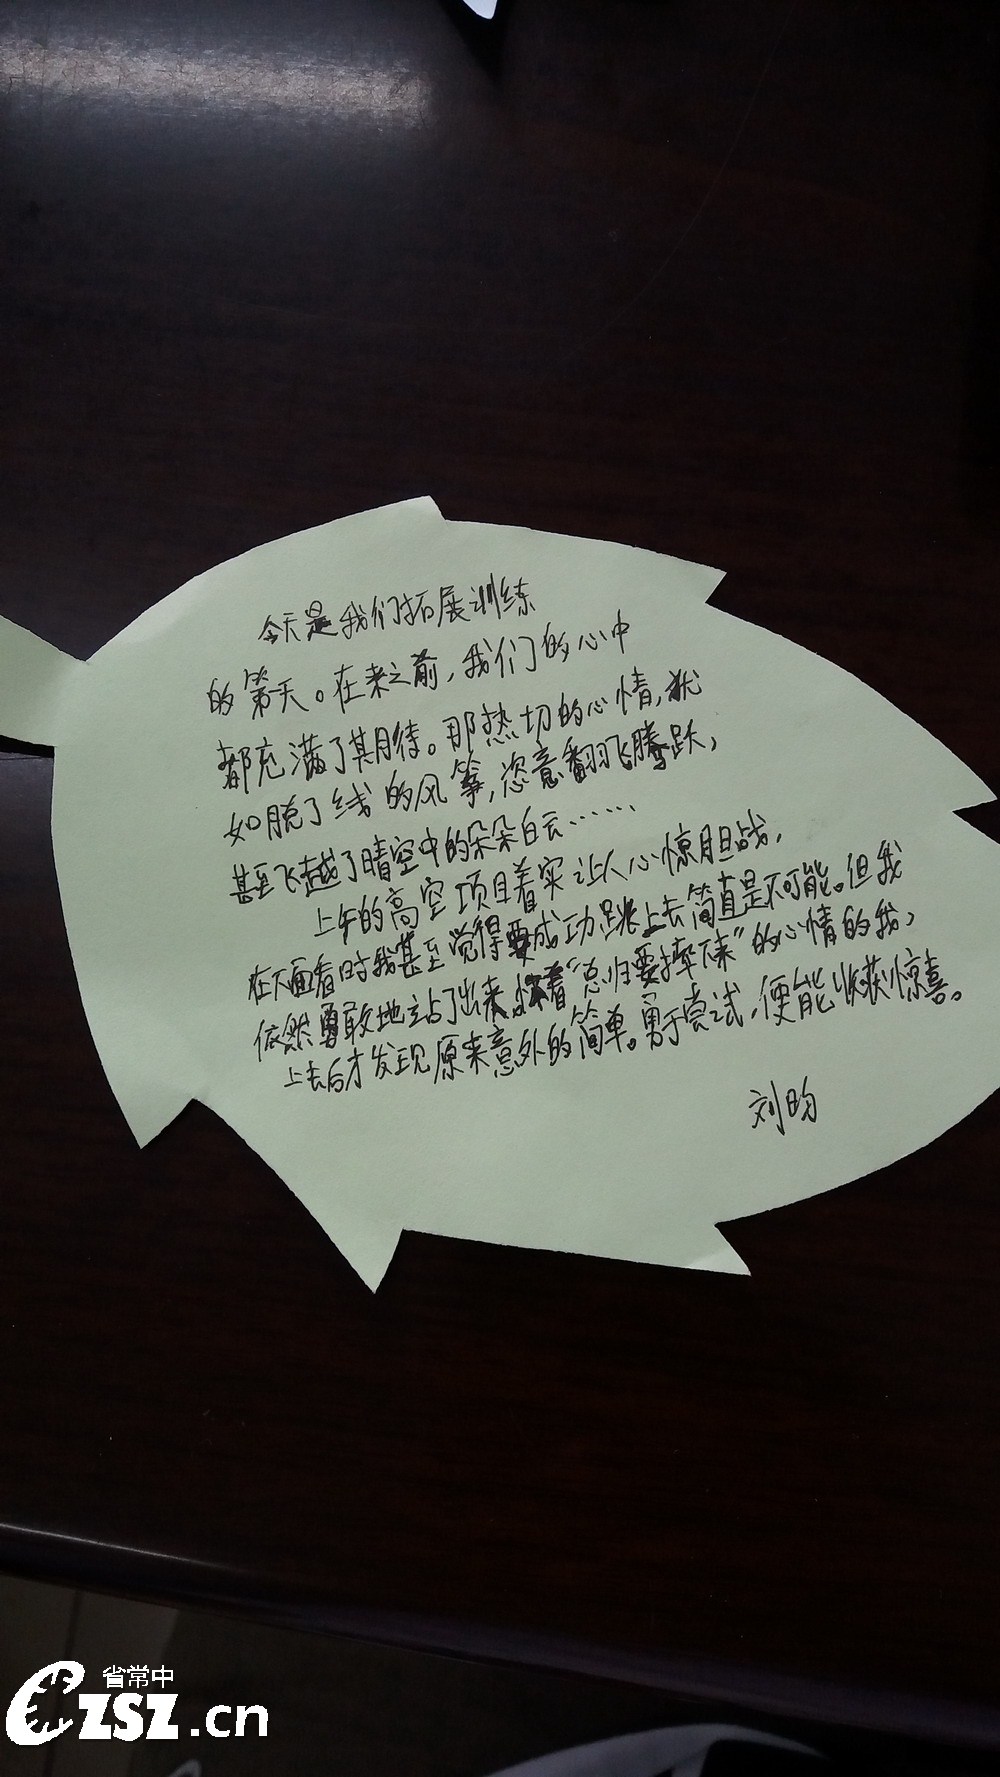 今天是我们拓展训练
的第一天。在来之前,我们的心中
都充满了期待。那热切的心情,犹
如脱了线的风筝,恣意翻飞腾跃,
甚至飞越了晴空中的朵朵白云……
上午的高空项目着实让人心惊胆战,
在下面看时我甚至觉得要成功跳上去简直是不可能。但我
依然勇敢地站了出来,怀着“总归要摔下来”的心情的我,
上去后才发现原来意外的简单。勇于尝试,便能收获惊喜。
刘昀
省常中
CZSZ.cn